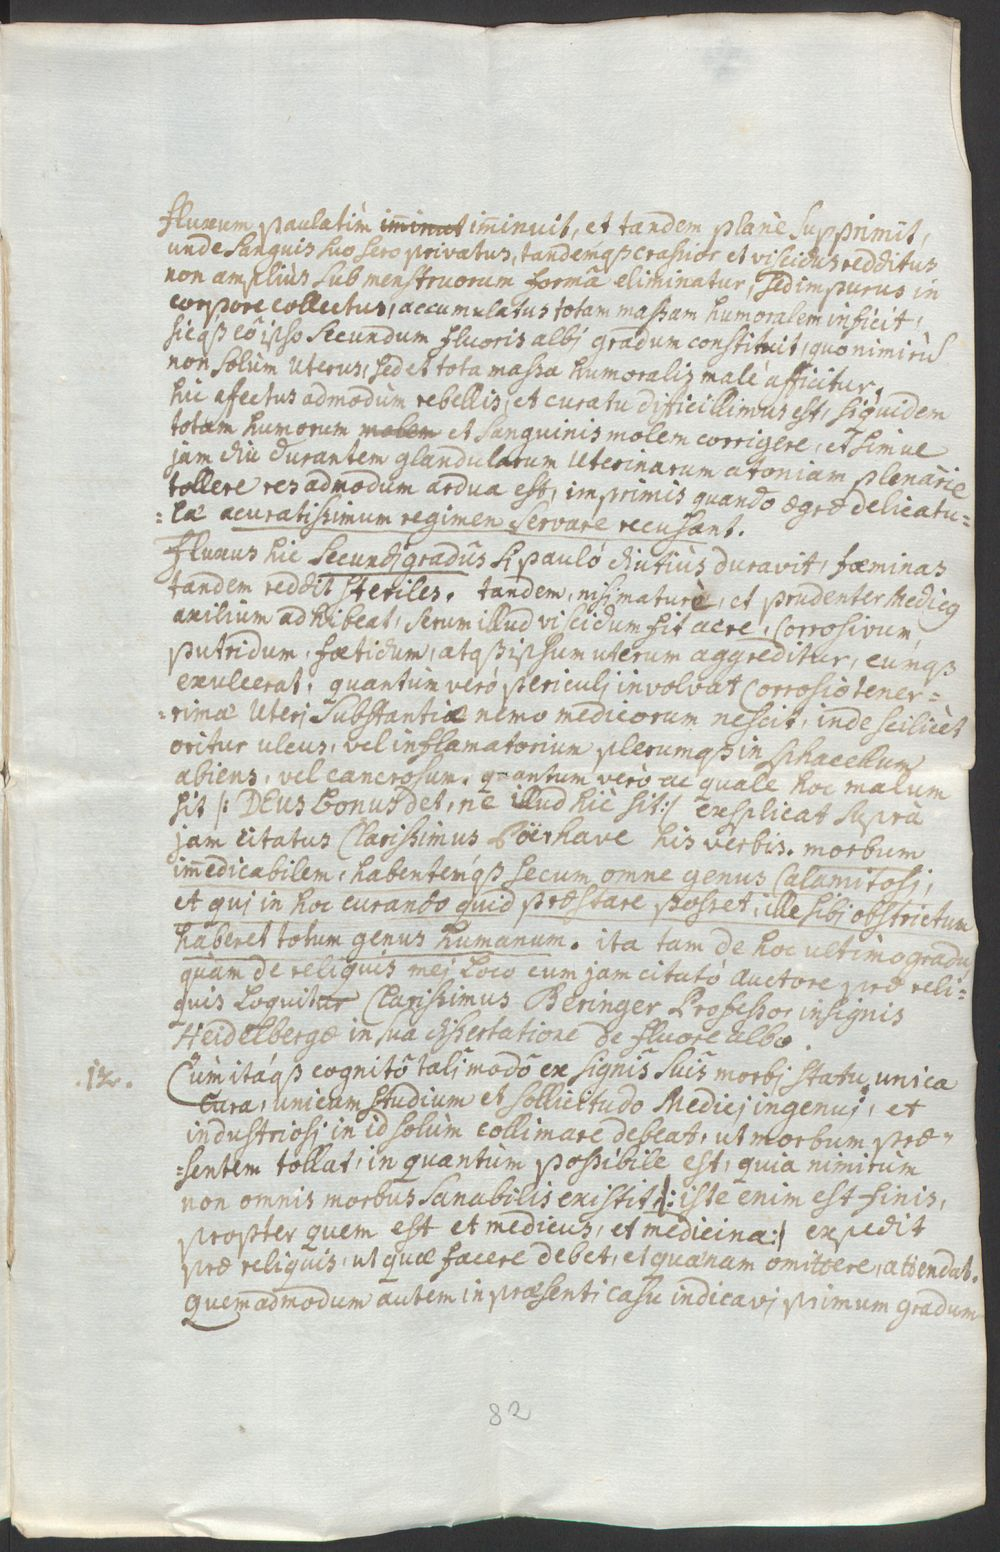 fluxum paulatim im̄inuit im̄inuit, et tandem planè supprimit,
unde sanguis suo sero privatus, tandemqß crassior et viscidus redditus
non ampliùs sub menstruorum formâ eliminatur, sed impurus in
corpore collectus, accumulatus totam massam humoralem inficit,
sicqß eô ipso secundum fluoris albj gradum constituit, quo nimirùm
non solùm uterus, sed et tota massa humoralis malè afficitur.
hic afectus admodùm rebellis, et curatu difficillimus est, siquidem
totam humorum molem et sanguinis molem corrigere, et simul
jam diu durantem glandularum uterinarum atoniam plenariè
tollere res admodum ardua est, imprimis quando ægræ delicatu=
=læ acuratissimum regimen servare recusant.
Fluxus hic secundj gradûs si paulò diutiùs duravit, fæminas
tandem reddit steriles. tandem, nisi maturè, et prudenter Medicg
auxilium adhibeat, serum illud viscidum fit acre, corrosivum,
putridum, fœtidum, atqß ipsum uterum aggreditur, eumqß
exulcerat, quantùm verò periculj involvat corrosio tener=
=rimæ Uterj substantiæ nemo medicorum nescit, inde scilicèt
oritur ulcus, vel inflamatorium plerumqß in sphacellum
abiens, vel cancrosum. quantum verò ac quale hoc malum
sit /: DEus bonus det, ne illud hic sit :/ explicat suprà
jam citatus Clarissimus Böerhave his verbis. morbum
im̄edicabilem, habentemqß secum omne genus calamitosj,
et quj in hoc curando quid præstare posset, ille sibj obstrictum
haberet totum genus humanum. ita tam de hoc ultimo gradu,
quàm de reliquis mej loco cum jam citatô auctore præ reli=
quis loquitur Clarissimus Beringer Professor insignis
Heidelbergæ in sua dissertatione de fluore albo.
.12. Cùm itaqß cognitô talj modô ex signis suis morbj statu, unica
cura, unicum studium et sollicitudo Medicj ingenuj, et
industriosj in id solùm collimare debeat, ut morbum præ=
=sentem tollat, in quantum possibile est, quia nimirùm
non omnis morbus sanabilis existit /: iste enim est finis,
propter quem est et medicus, et medicina :/ expedit
præ reliquis, ut quæ facere debet, et quænam omittere, attendat.
Quemadmodum autem in præsenti casu indicavj primum gradum
82